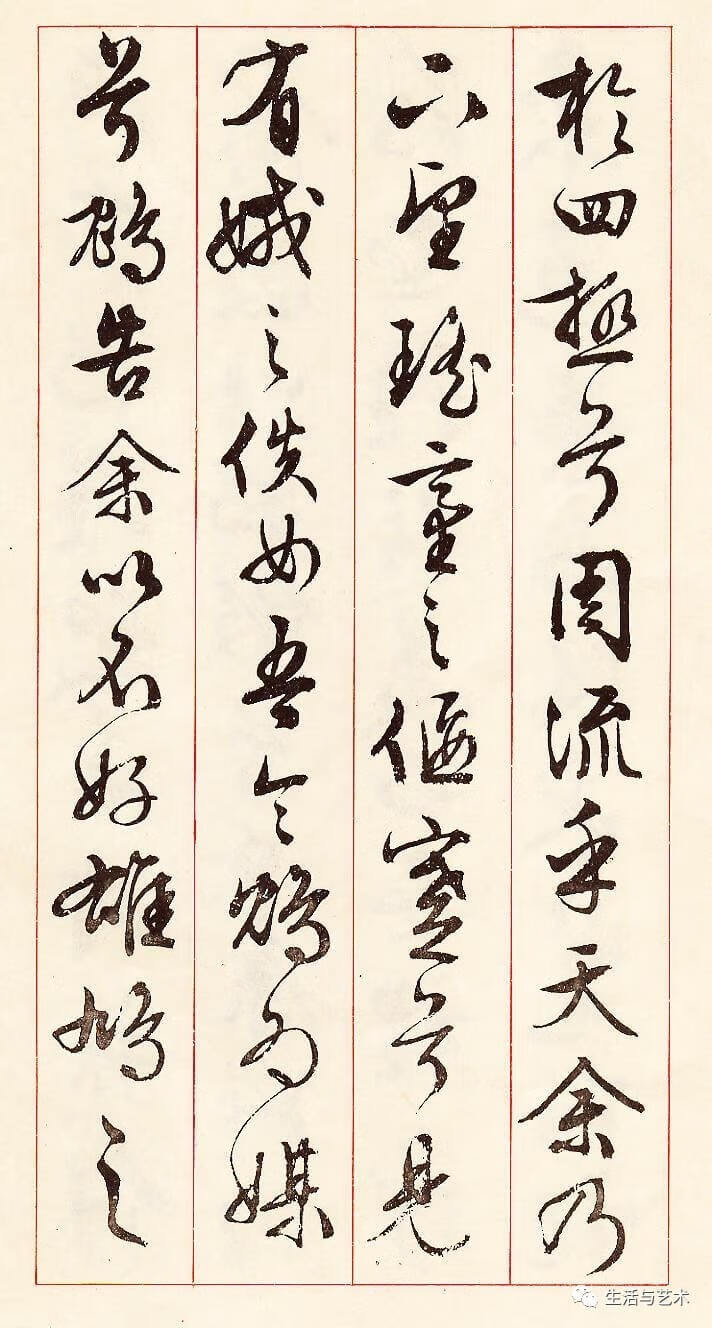 於四極兮周流乎天余乃
下望瑤臺之偃蹇兮見
有娀之佚女吾令鴆為媒
兮鴆告余以不好雄鳩之
生活与艺术